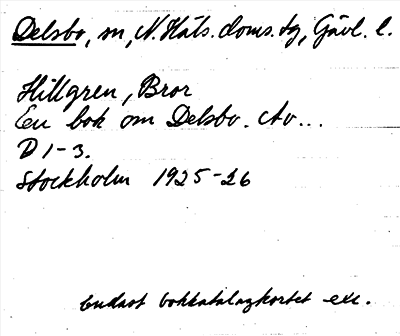 Delsbo, sn, N. Häls. doms. dg, Gävl. l.
Hillgren, Bror
En bok om Delsbo. Av...
D 1-3.
Stockholm 1925-26
Endast bokkatalogkortet exc.